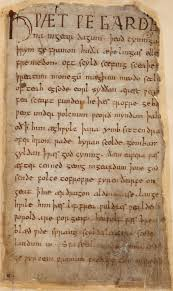 HǷÆT ǷE GARDE
na ingear dagum. þeod cyninga
þrym ge frunon huða æþelingas elle
fremedon. oft scyld scefing sceaþe
þreatum monegū mægþum meodo setla
of teah egsode eorl syððan ærest
fea sceaft funden he þæs frofre geba
ƿeox under ƿolcnum ƿeorð myndum þah
oð ꝥ him æghƿylc þara ymb sittendra
ofer hron rade hyran scolde gomban
gyldan ꝥ ƿæs god cyning. ðæm eafera ƿæs
æfter cenned geong ingeardum þone god
sende folce tofrofre fyren ðearfe on
geat ꝥ hie ær drugon aldor ase. lange
hƿile him þæs lif frea ƿuldres ƿealdend
ƿorold are for geaf. beoƿulf ƿæs breme
blæd ƿide sprang scyldes eafera scede
landum in. Sƿa
ge ƿyrcean fromum feoh giftum